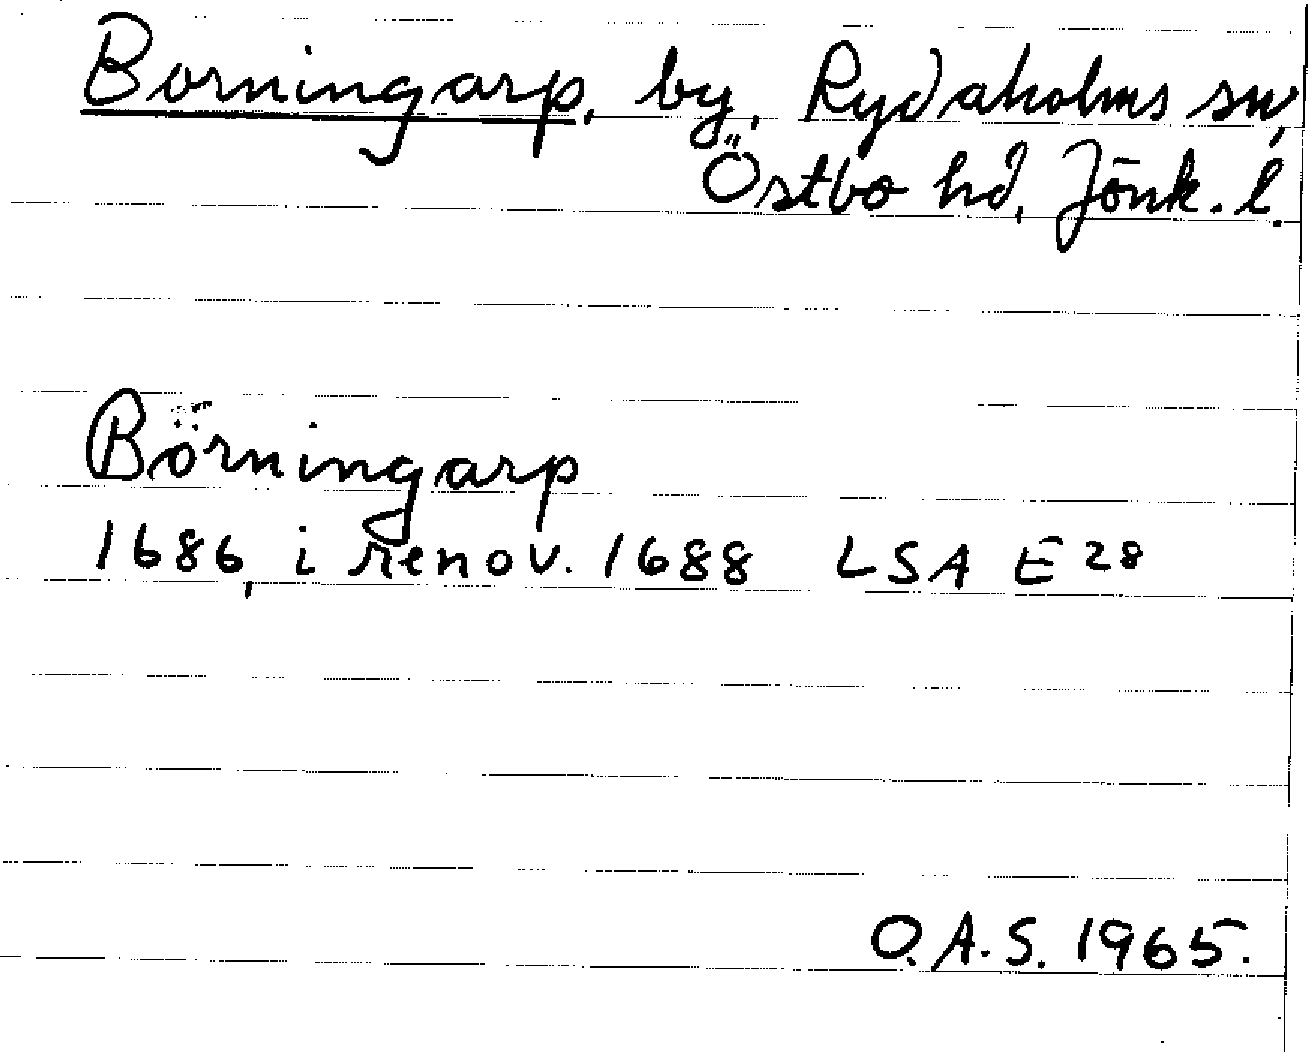 Borningarp, by, Rydaholms sn,
Östbo hd, Jönk. l.
Börningarp
1686, i renov. 1688 LSA E 28
O.A.S. 1965.